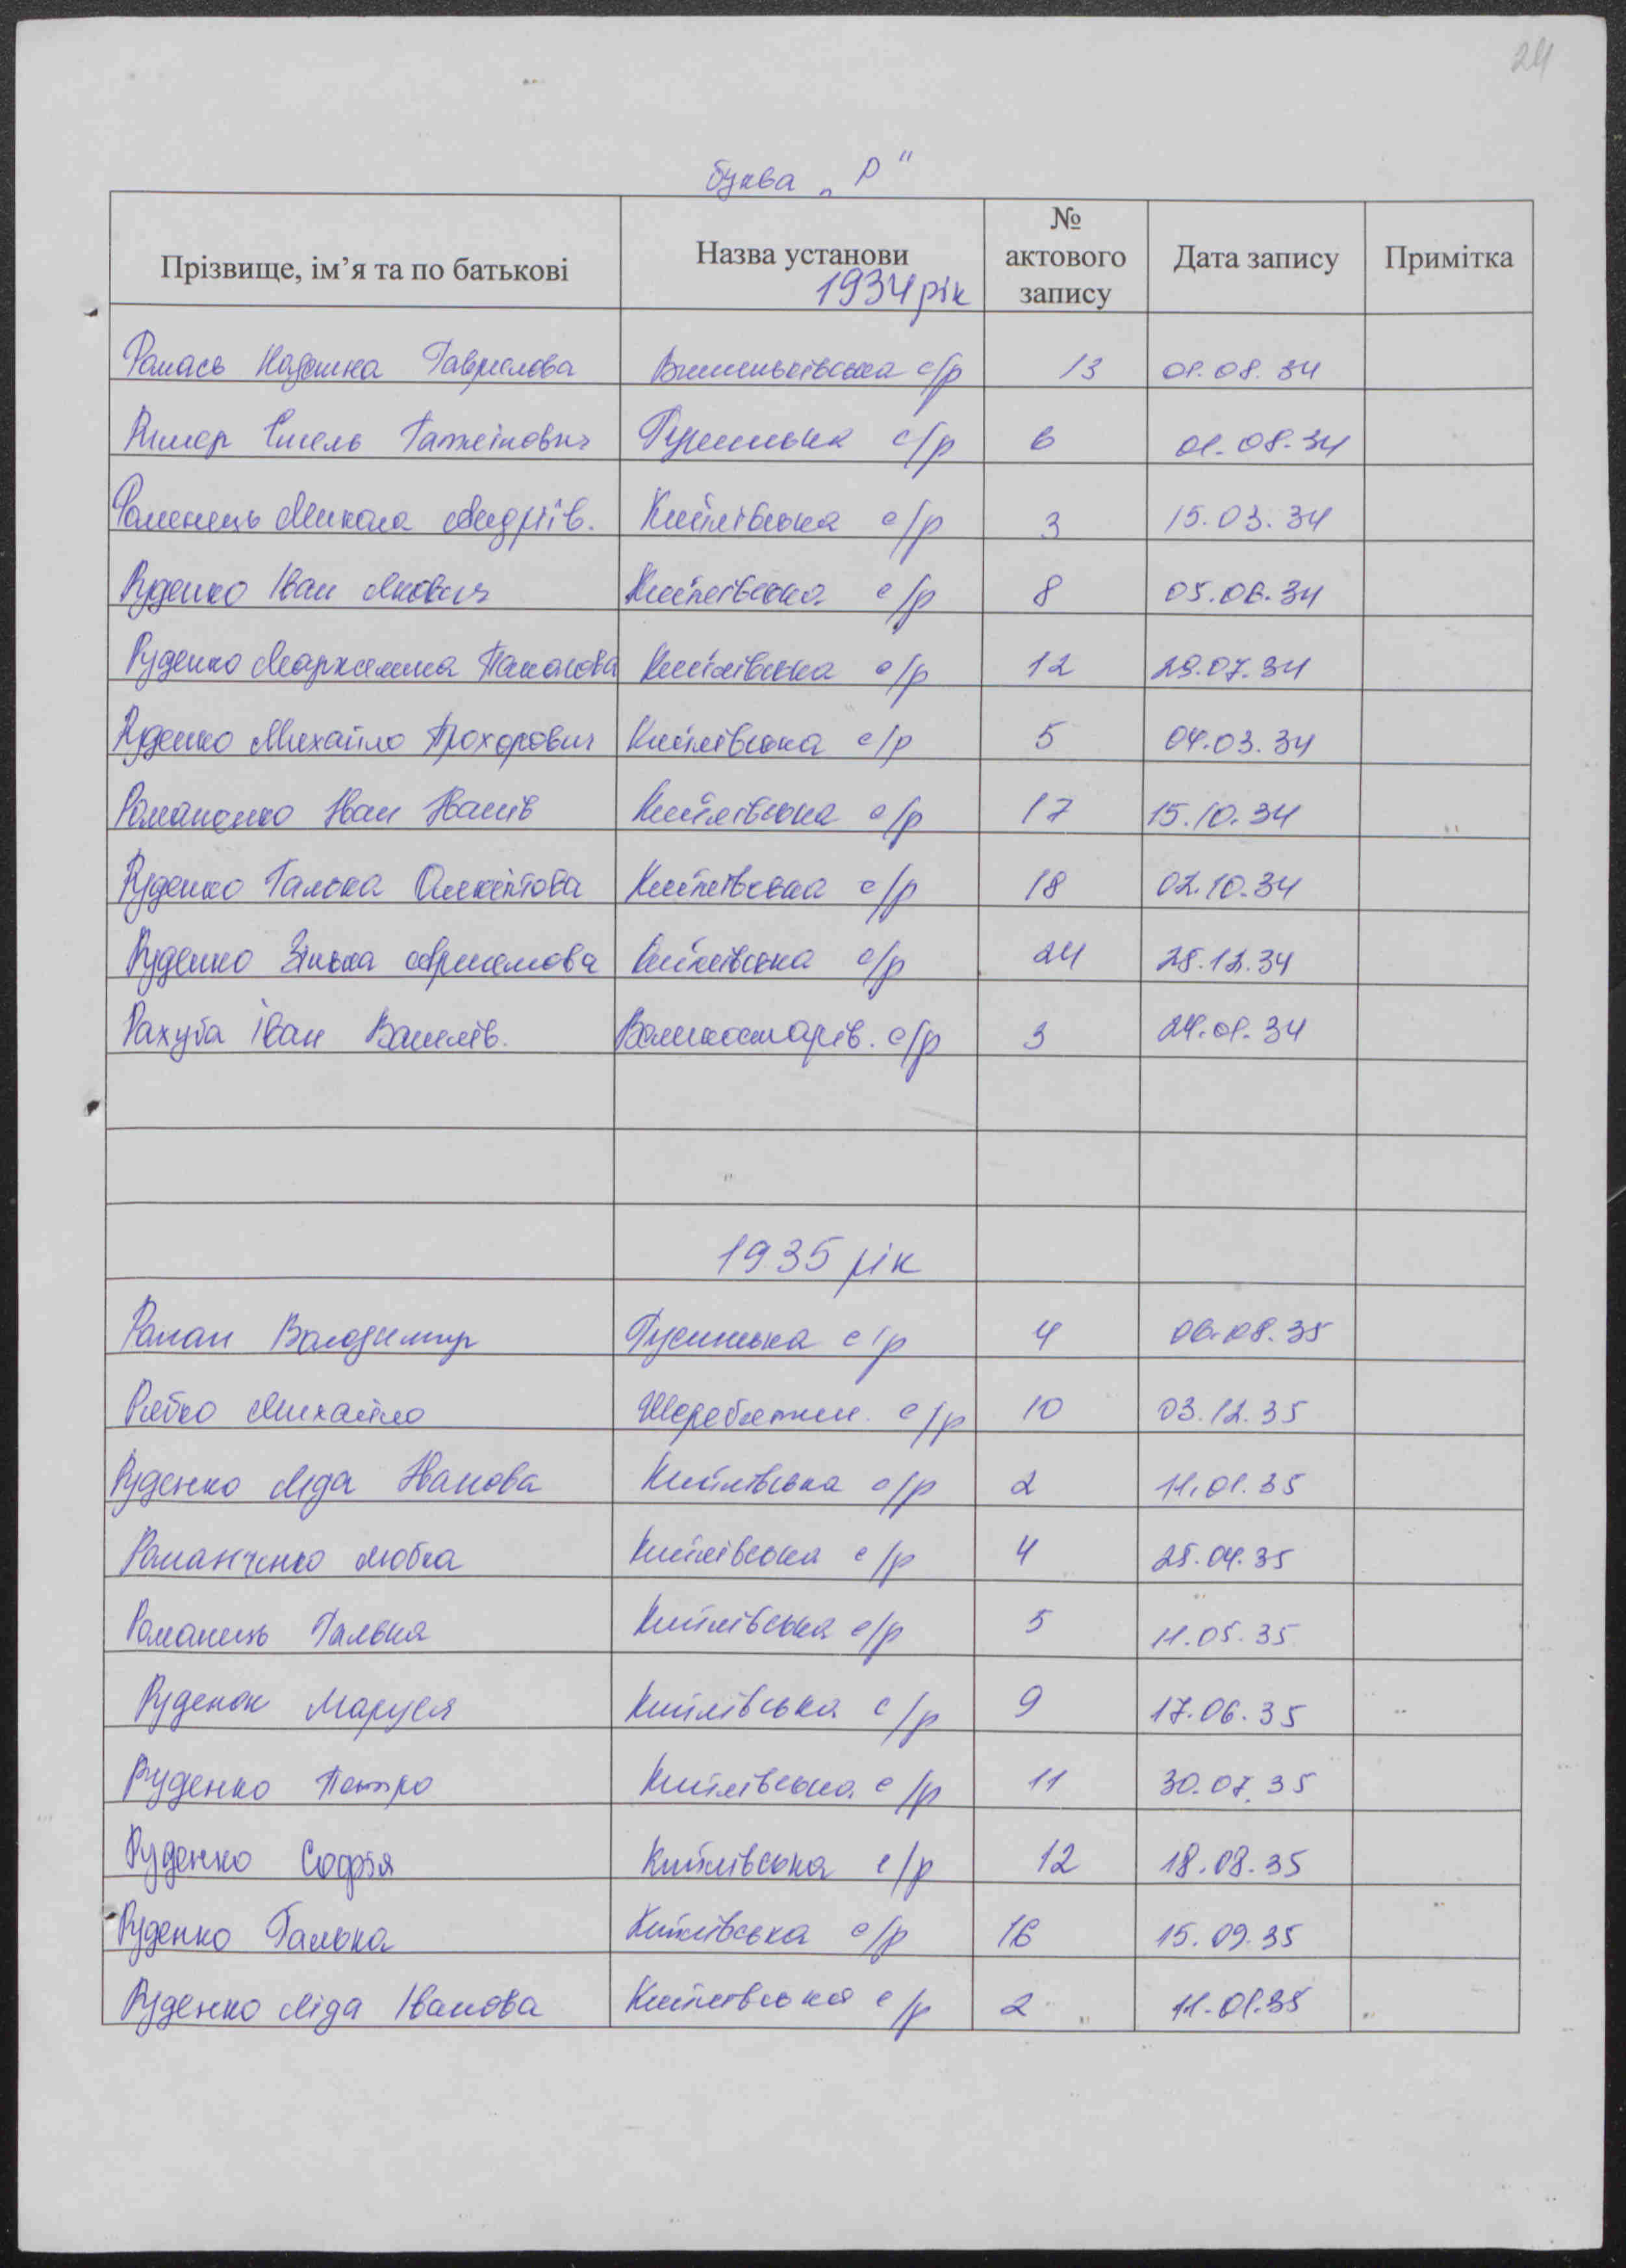 24
буква „Р"
Прізвище, ім’я та по батькові Назва установи 1934 рік № актового запису Дата запису Примітка
Ромась Надежка Гаврилова Вишеньківська с/р 13 01.08.34
Ример с/р 6 01.08.34
Роменець Микола Андріїв. Кийлівська с/р 3 15.03.34
Руденко Іван Якович Кийлівська с/р 8 05.06.34
Руденко Панасова Кийлівська с/р 12 29.07.34
Руденко Михайло Прохорович Кийлівська с/р 5 04.03.34
Романенко Іван Іванів Кийлівська с/р 17 15.10.34
Руденко Галька Кийлівська с/р 18 02.10.34
Руденко Зінька Кийлівська с/р 24 28.12.34
Рахуба Іван Василів. Великостарів. с/р 3 24.01.34
1935 рік
Роман Володимир с/р 4 06.08.35
Рябко Михайло Жеребятин. с/р 10 03.12.35
Руденко Ліда Іванова Кийлівська с/р 2 11.01.35
Романченко Любка Кийлівська с/р 4 25.04.35
Романець Галька Кийлівська с/р 5 11.05.35
Руденок Маруся Кийлівська с/р 9 17.06.35
Руденко Петро Кийлівська с/р 11 30.07.35
Руденко Софія Кийлівська с/р 12 18.08.35
Руденко Галька Кийлівська с/р 16 15.09.35
Руденко Ліда Іванова Кийлівська с/р 2 11.01.35